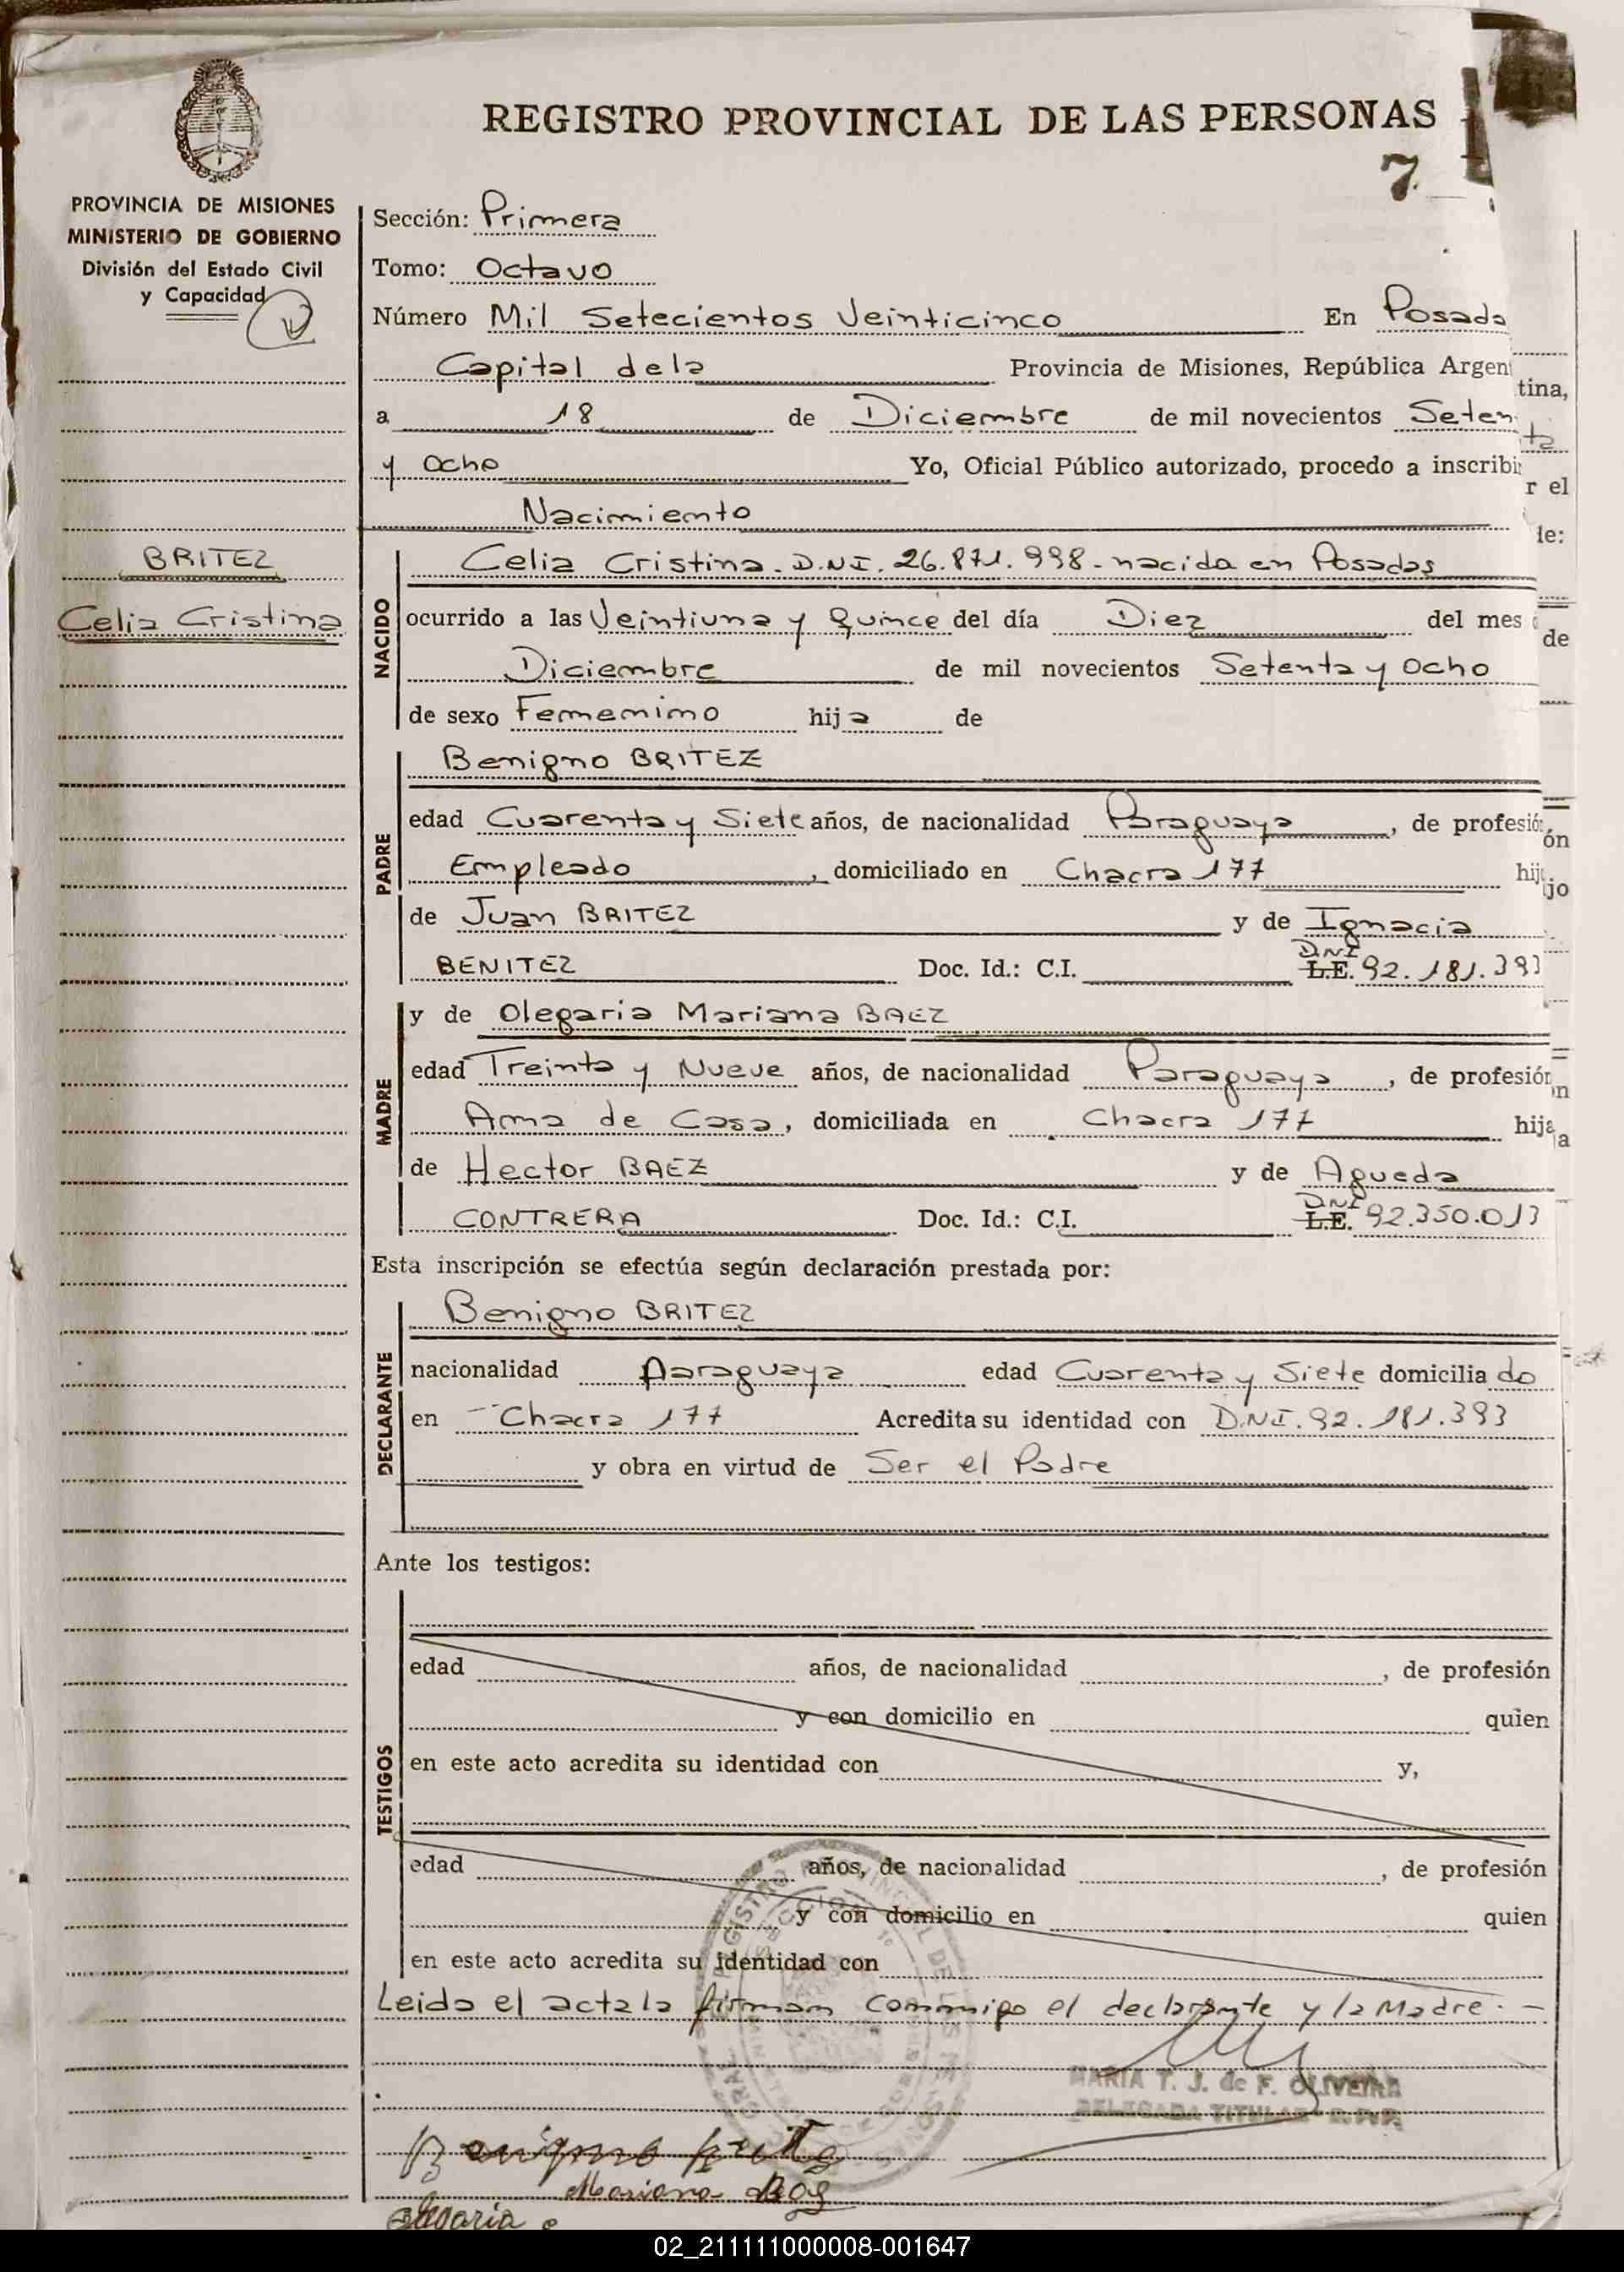 REGISTRO PROVINCIAL DE LAS PERSONAS
7
PROVINCIA DE MISIONES
MINISTERIO DE GOBIERNO
División del Estado Civil
y Capacidad
Sección: Primera
Tomo: Octavo
Número Mil Setecientos Veinticinco En Posada
Capital dela Provincia de Misiones, República Argentina,
a 18 de Diciembre de mil novecientos Setenta
y Ocho Yo, Oficial Público autorizado, procedo a inscribir el
Nacimiento de:
BRITEZ
Celia Cristina
NACIDO
Celia Cristina. D.N.I. 26.871.998 - nacida en Posadas
ocurrido a las Veintiuna y Quince del día Diez del mes de
Diciembre de mil novecientos Setenta y Ocho
de sexo Femenino hija de
PADRE
Benigno BRITEZ
edad Cuarenta y Siete años, de nacionalidad Paraguaya, de profesión
Empleado, domiciliado en Chacra 177 hijo
de Juan BRITEZ y de Ignacia
BENITEZ Doc. Id.: C.I. L.E. DNI 92.181.393
MADRE
y de Olegaria Mariana BAEZ
edad Treinta y Nueve años, de nacionalidad Paraguaya, de profesión
Ama de Casa, domiciliada en Chacra 177 hija
de Hector BAEZ y de Agueda
CONTRERA Doc. Id.: C.I. L.E. DNI 92.350.013
Esta inscripción se efectúa según declaración prestada por:
DECLARANTE
Benigno BRITEZ
nacionalidad Paraguaya edad Cuarenta y Siete domiciliado
en Chacra 177 Acredita su identidad con D.N.I. 92.181.393
y obra en virtud de Ser el Padre
Ante los testigos:
TESTIGOS
edad años, de nacionalidad , de profesión
y con domicilio en quien
en este acto acredita su identidad con y,
edad años, de nacionalidad , de profesión
y con domicilio en quien
en este acto acredita su identidad con
Leida el acta la firman conmigo el declarante y la Madre. -
MARIA T. J. de F. OLIVEIRA
DELEGADA TITULAR R.P.P.
Benigno Britez
Mariana
02_211111000008-001647